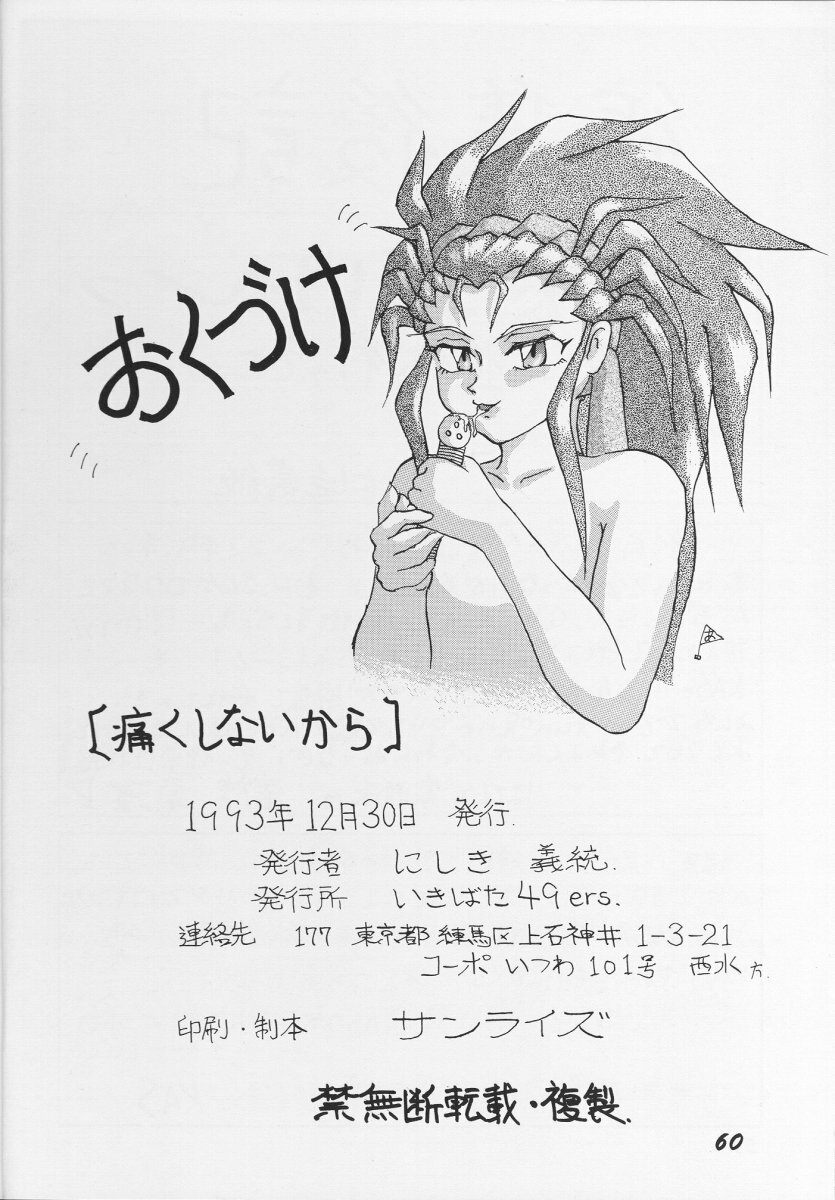 おくづけ
あ
[痛くしないから]
1993年12月30日 発行.
発行者 にしき 義統.
発行所 いきばた49ers.
連絡先 177 東京都練馬区上石神井 1-3-21
コーポいつわ101号 西水方.
印刷・製本 サンライズ
禁無断転載・複製.
60